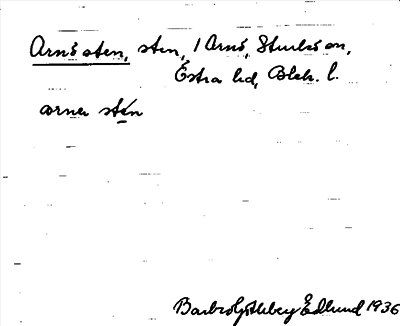 Arnö sten, sten, / Arnö, Sturkö sn,
Östra hd, Blek. l.
arne stén
Barbro Göthberg Edlund 1936